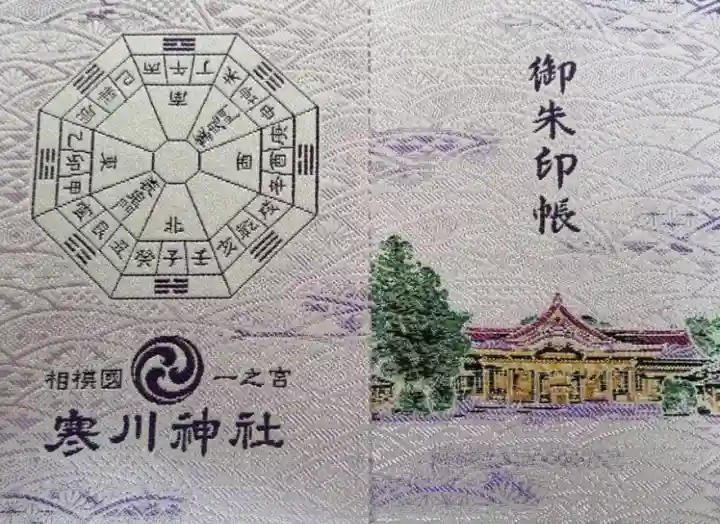 御朱印帳
南
西
北
東
丙 午 丁
未 坤 申
庚 酉 辛
壬 子 癸
丑 艮 寅
甲 卯 乙
辰 巽 巳
裏鬼門
表鬼門
相模國 一之宮
寒川神社